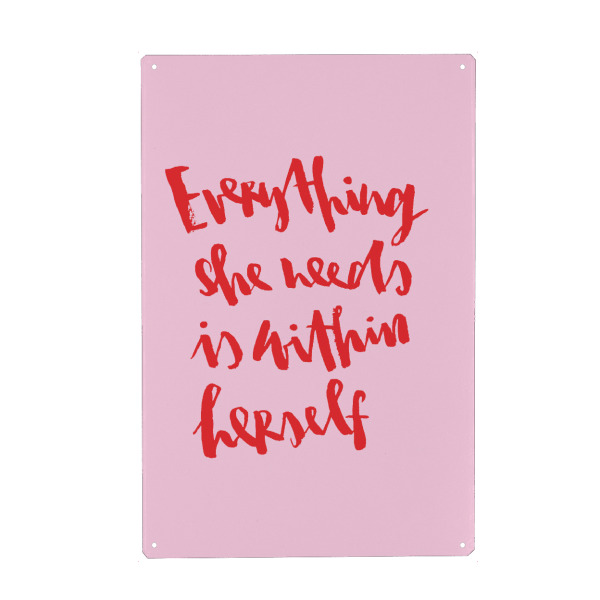 Everything
she needs
is within
herself